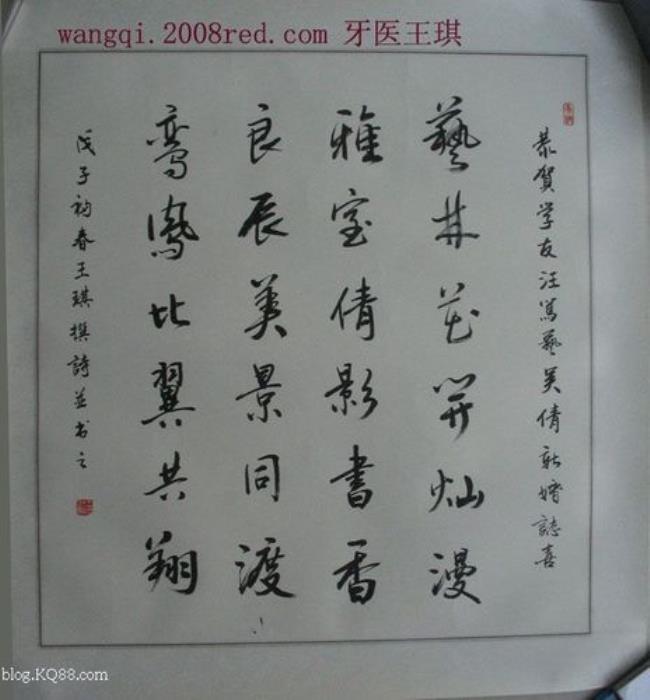 wangqi.2008red.com 牙医王琪
恭贺学友汪笃艺吴倩新婚誌喜
藝林花开灿漫
雅室倩影書香
良辰美景同渡
鸾鳳比翼共翔
戊子初春王琪撰詩並书之
blog.KQ88.com